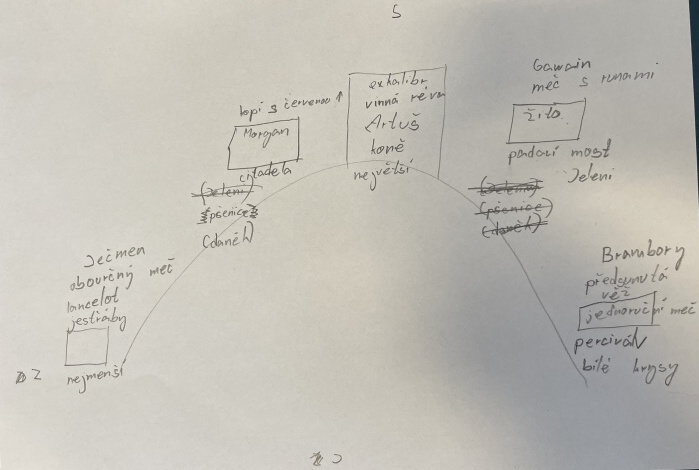 S
exkalibr
vinná réva
Artuš
koně
největší
kopí s červenou
Morgan
citadela
(jeleni)
(pšenice)
(daněk)
Gawain
meč s runami
žito
padací most
Jeleni
(jeleni)
(pšenice)
(daněk)
Ječmen
obouručný meč
lancelot
jestřáby
nejmenší
Z
Brambory
předsunutá
věž
jednoruční meč
percivál
bílé krysy
J